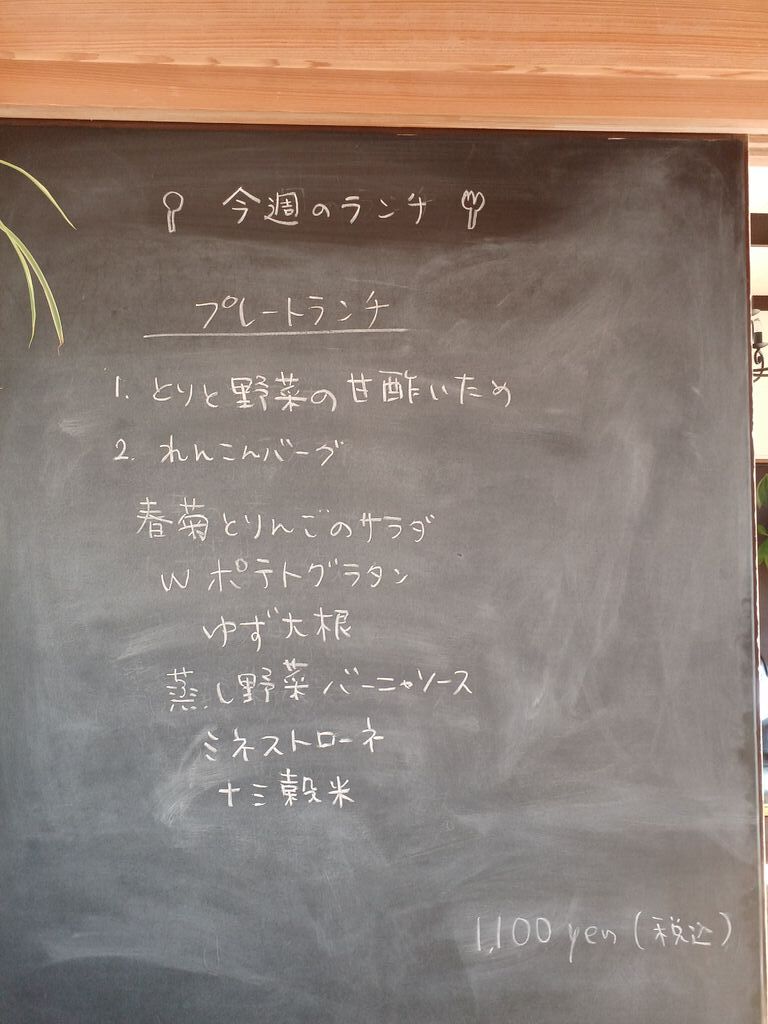 今週のランチ
プレートランチ
1. とりと野菜の甘酢いため
2. れんこんバーグ
春菊とりんごのサラダ
W ポテトグラタン
ゆず大根
蒸し野菜 バーニャソース
ミネストローネ
十三穀米
1,100 yen (税込)